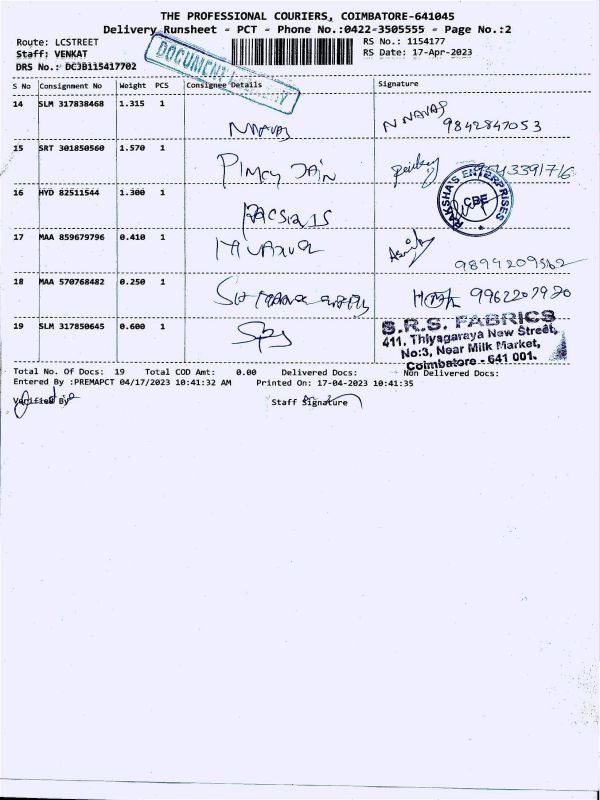 THE PROFESSIONAL COURIERS, COIMBATORE-641045
Delivery Runsheet - PCT - Phone No.:0422-3505555 - Page No.:2
Route: LCSTREET RS No.: 1154177
Staff: VENKAT RS Date: 17-Apr-2023
DRS No.: DCJB115417702
DOCUMENT
S No Consignment No Weight PCS Consignee Details Signature
14 SLM 317838468 1.315 1
Nnavas N NAVAS 9842847053
15 SRT 301850560 1.570 1
16 HYD 82511544 1.300 1
RAKSHA'S ENTERPRISES CBE
17 MAA 859679796 0.410 1
9899209562
18 MAA 570768482 0.250 1
9962207920
19 SLM 317850645 0.600 1
S.R.S. FABRICS
411, Thiyagaraya New Street,
No:3, Near Milk Market,
Coimbatore - 641 001.
Total No. Of Docs: 19 Total COD Amt: 0.00 Delivered Docs: Non Delivered Docs:
Entered By :PREMAPCT 04/17/2023 10:41:32 AM Printed On: 17-04-2023 10:41:35
Verified By Staff Signature